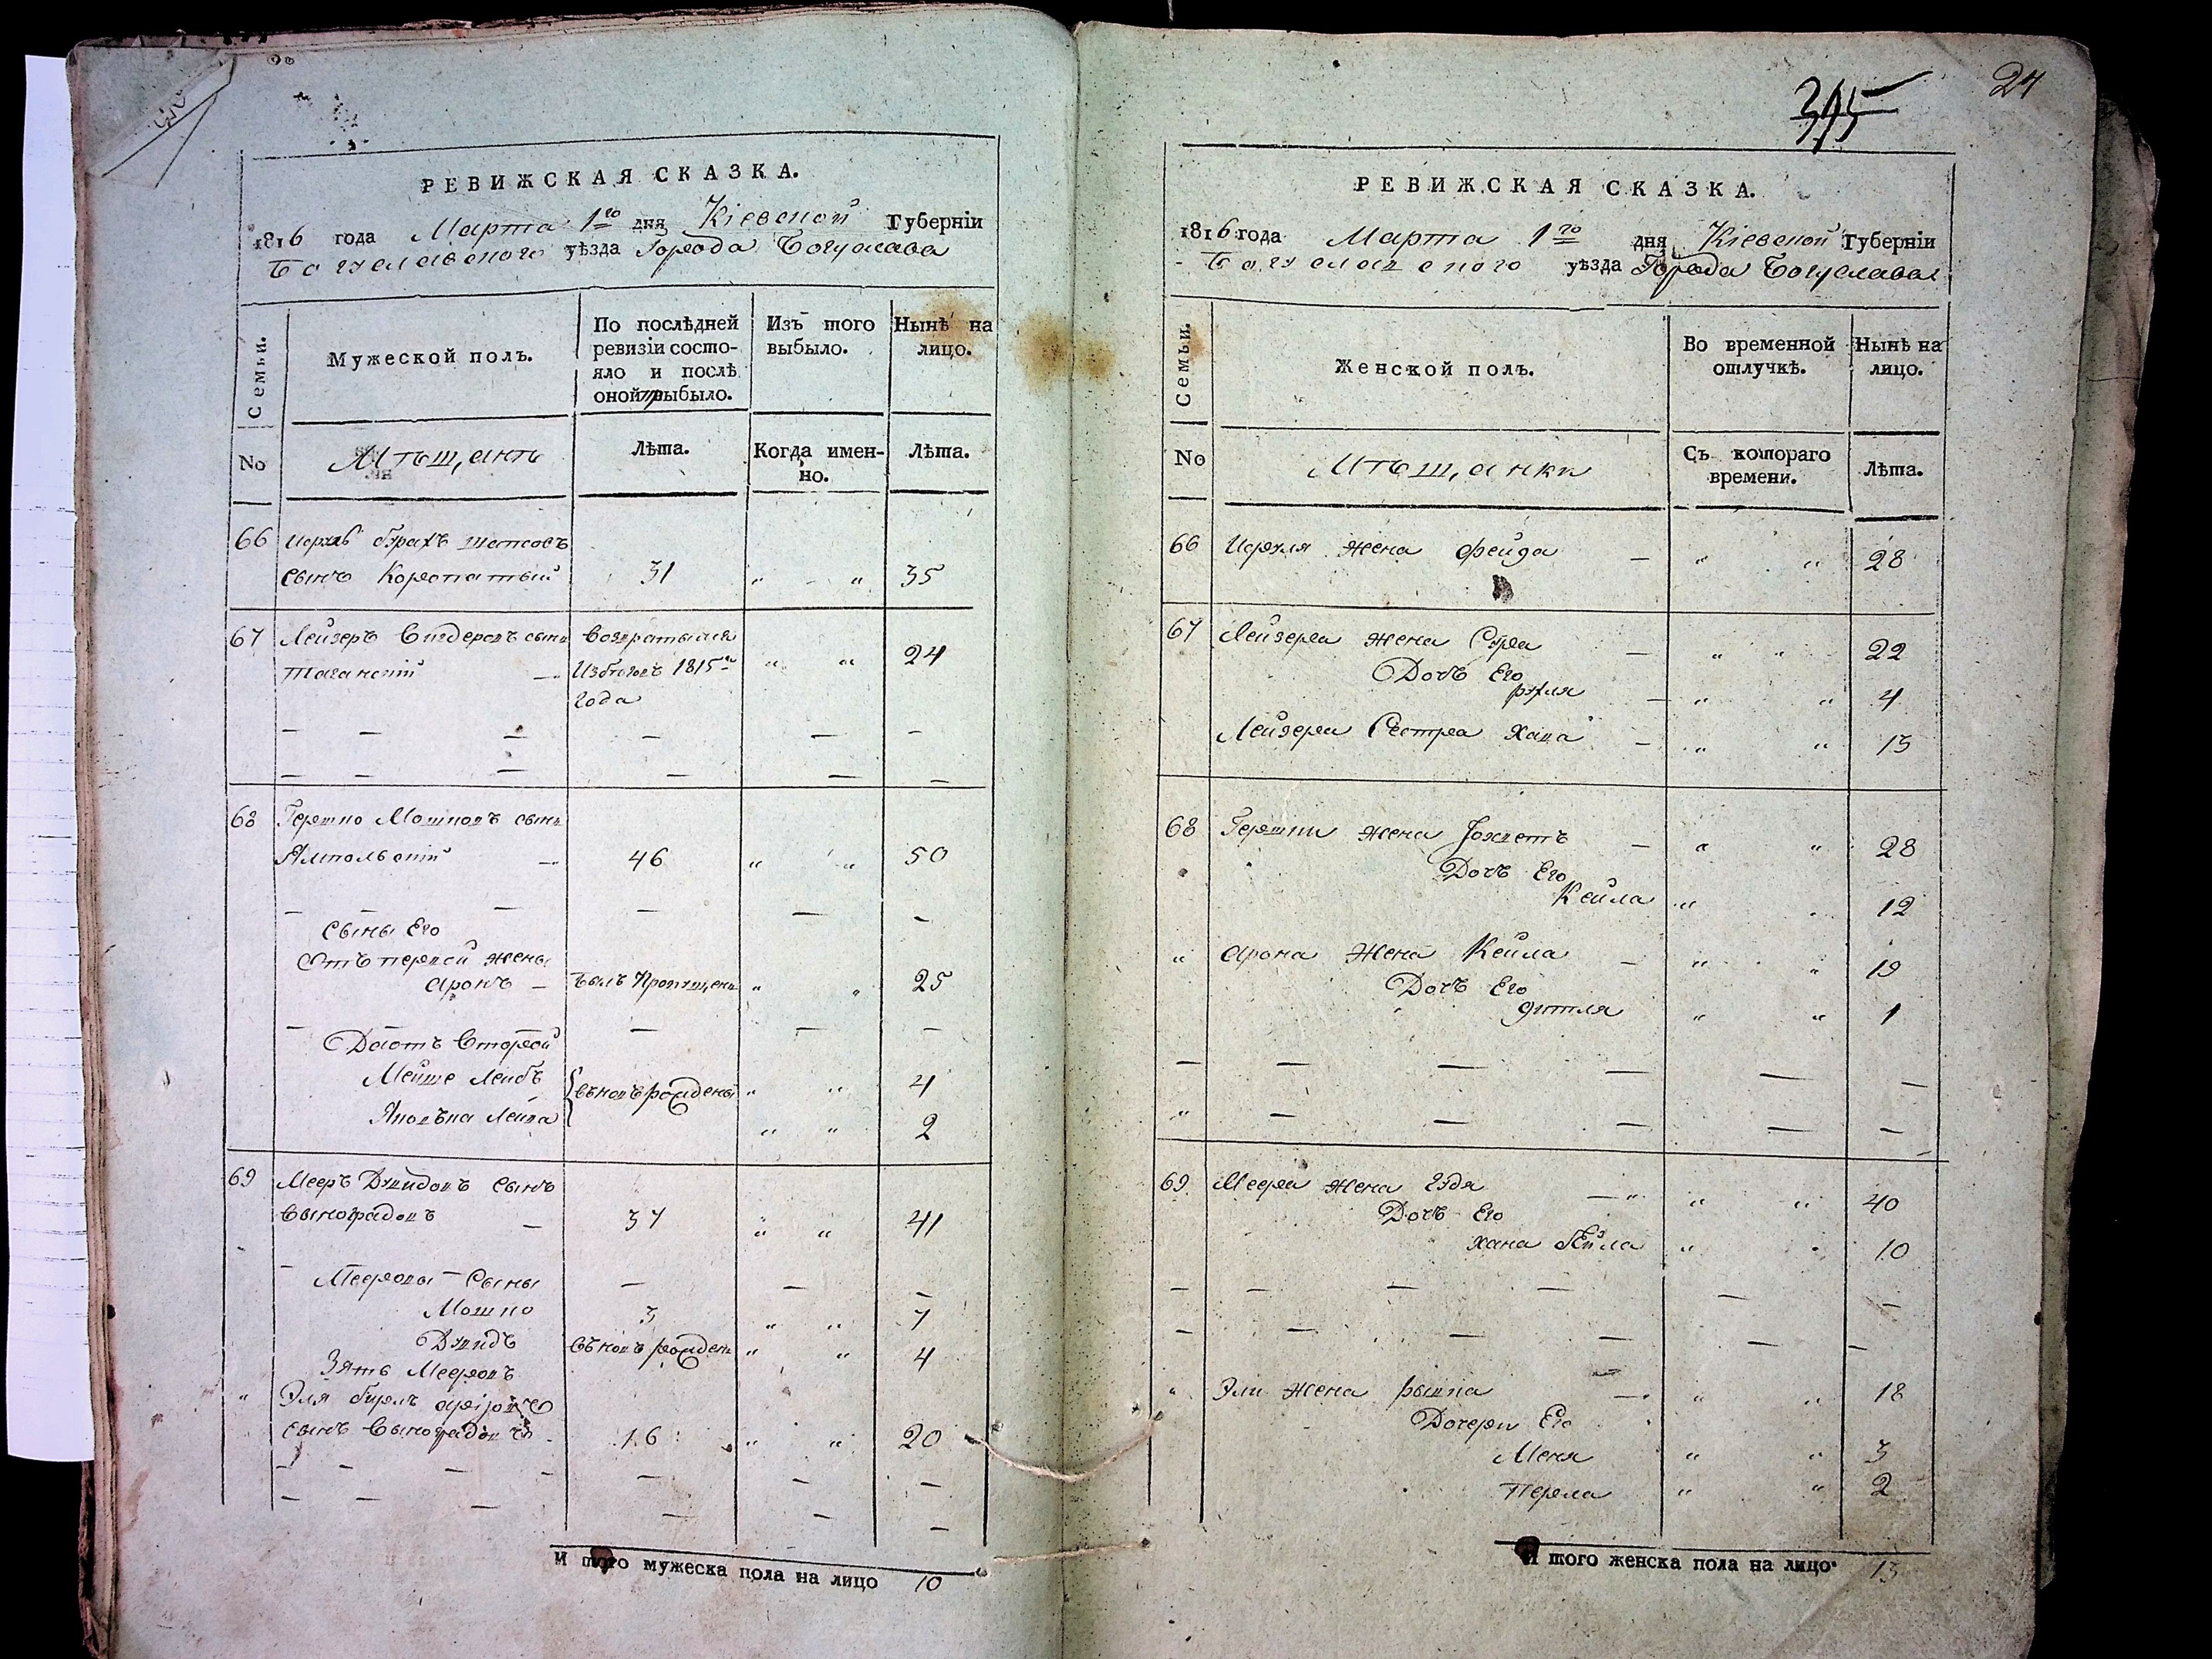 24
315
РЕВИЖСКАЯ СКАЗКА.
1816 года Марта 1го дня Кіевской Губерніи
Богуславского уѣзда Города Богуслава
Семьи.
Мужеской полъ.
По послѣдней
ревизіи состо-
яло и послѣ
оной прибыло.
Изъ того
выбыло.
Нынѣ на
лицо.
No
Мѣщанѣ
Лѣта.
Когда имен-
но.
Лѣта.
66 Шмаевъ
сынъ Коропатный 31 " " 35
67 Лейзеръ сынъ Возвратился
Таганскій — Избѣговъ 1815го " " 24
года
68 Гершко Мошковъ сынъ
Ямпольскій — 46 " " 50
Сыны Его
Отъ первой жены
Аронъ — былъ Пропущенъ " " 25
Отъ Второй
Мейше Лейбъ " " 4
вновь рождены
Янкель Лейба " " 2
69 Мееръ Дувидовъ Сынъ
Виноградовъ — 37 " " 41
Мееровы Сыны
Мошко 3 " " 7
Дувидъ вновь рожденъ " " 4
Зять Мееровъ
" Эля
сынъ Виноградовъ 16 " " 20
И того мужеска пола на лицо 10
РЕВИЖСКАЯ СКАЗКА.
1816 года Марта 1го дня Кіевской Губерніи
Богуславского уѣзда Города Богуслава
Семьи.
Женской полъ.
Во временной
отлучкѣ.
Нынѣ на
лицо.
No
Мѣщанки
Съ котораго
времени.
Лѣта.
66 Жена Фейга — " " 28
67 Лейзера жена Сура — " " 22
Дочь Его
Рухля — " " 4
Лейзера Сестра Хава — " " 13
68 Гершки жена Іохветъ — " " 28
Дочь Его
Кейла " " 12
" Арона Жена Кейла — " " 19
Дочь Его
" " 1
69 Меера жена — " " 40
Дочь Его
Хана Бейла " " 10
" Эли жена — " " 18
Дочери Его
Меня " " 3
Перла " " 2
И того женска пола на лицо 13